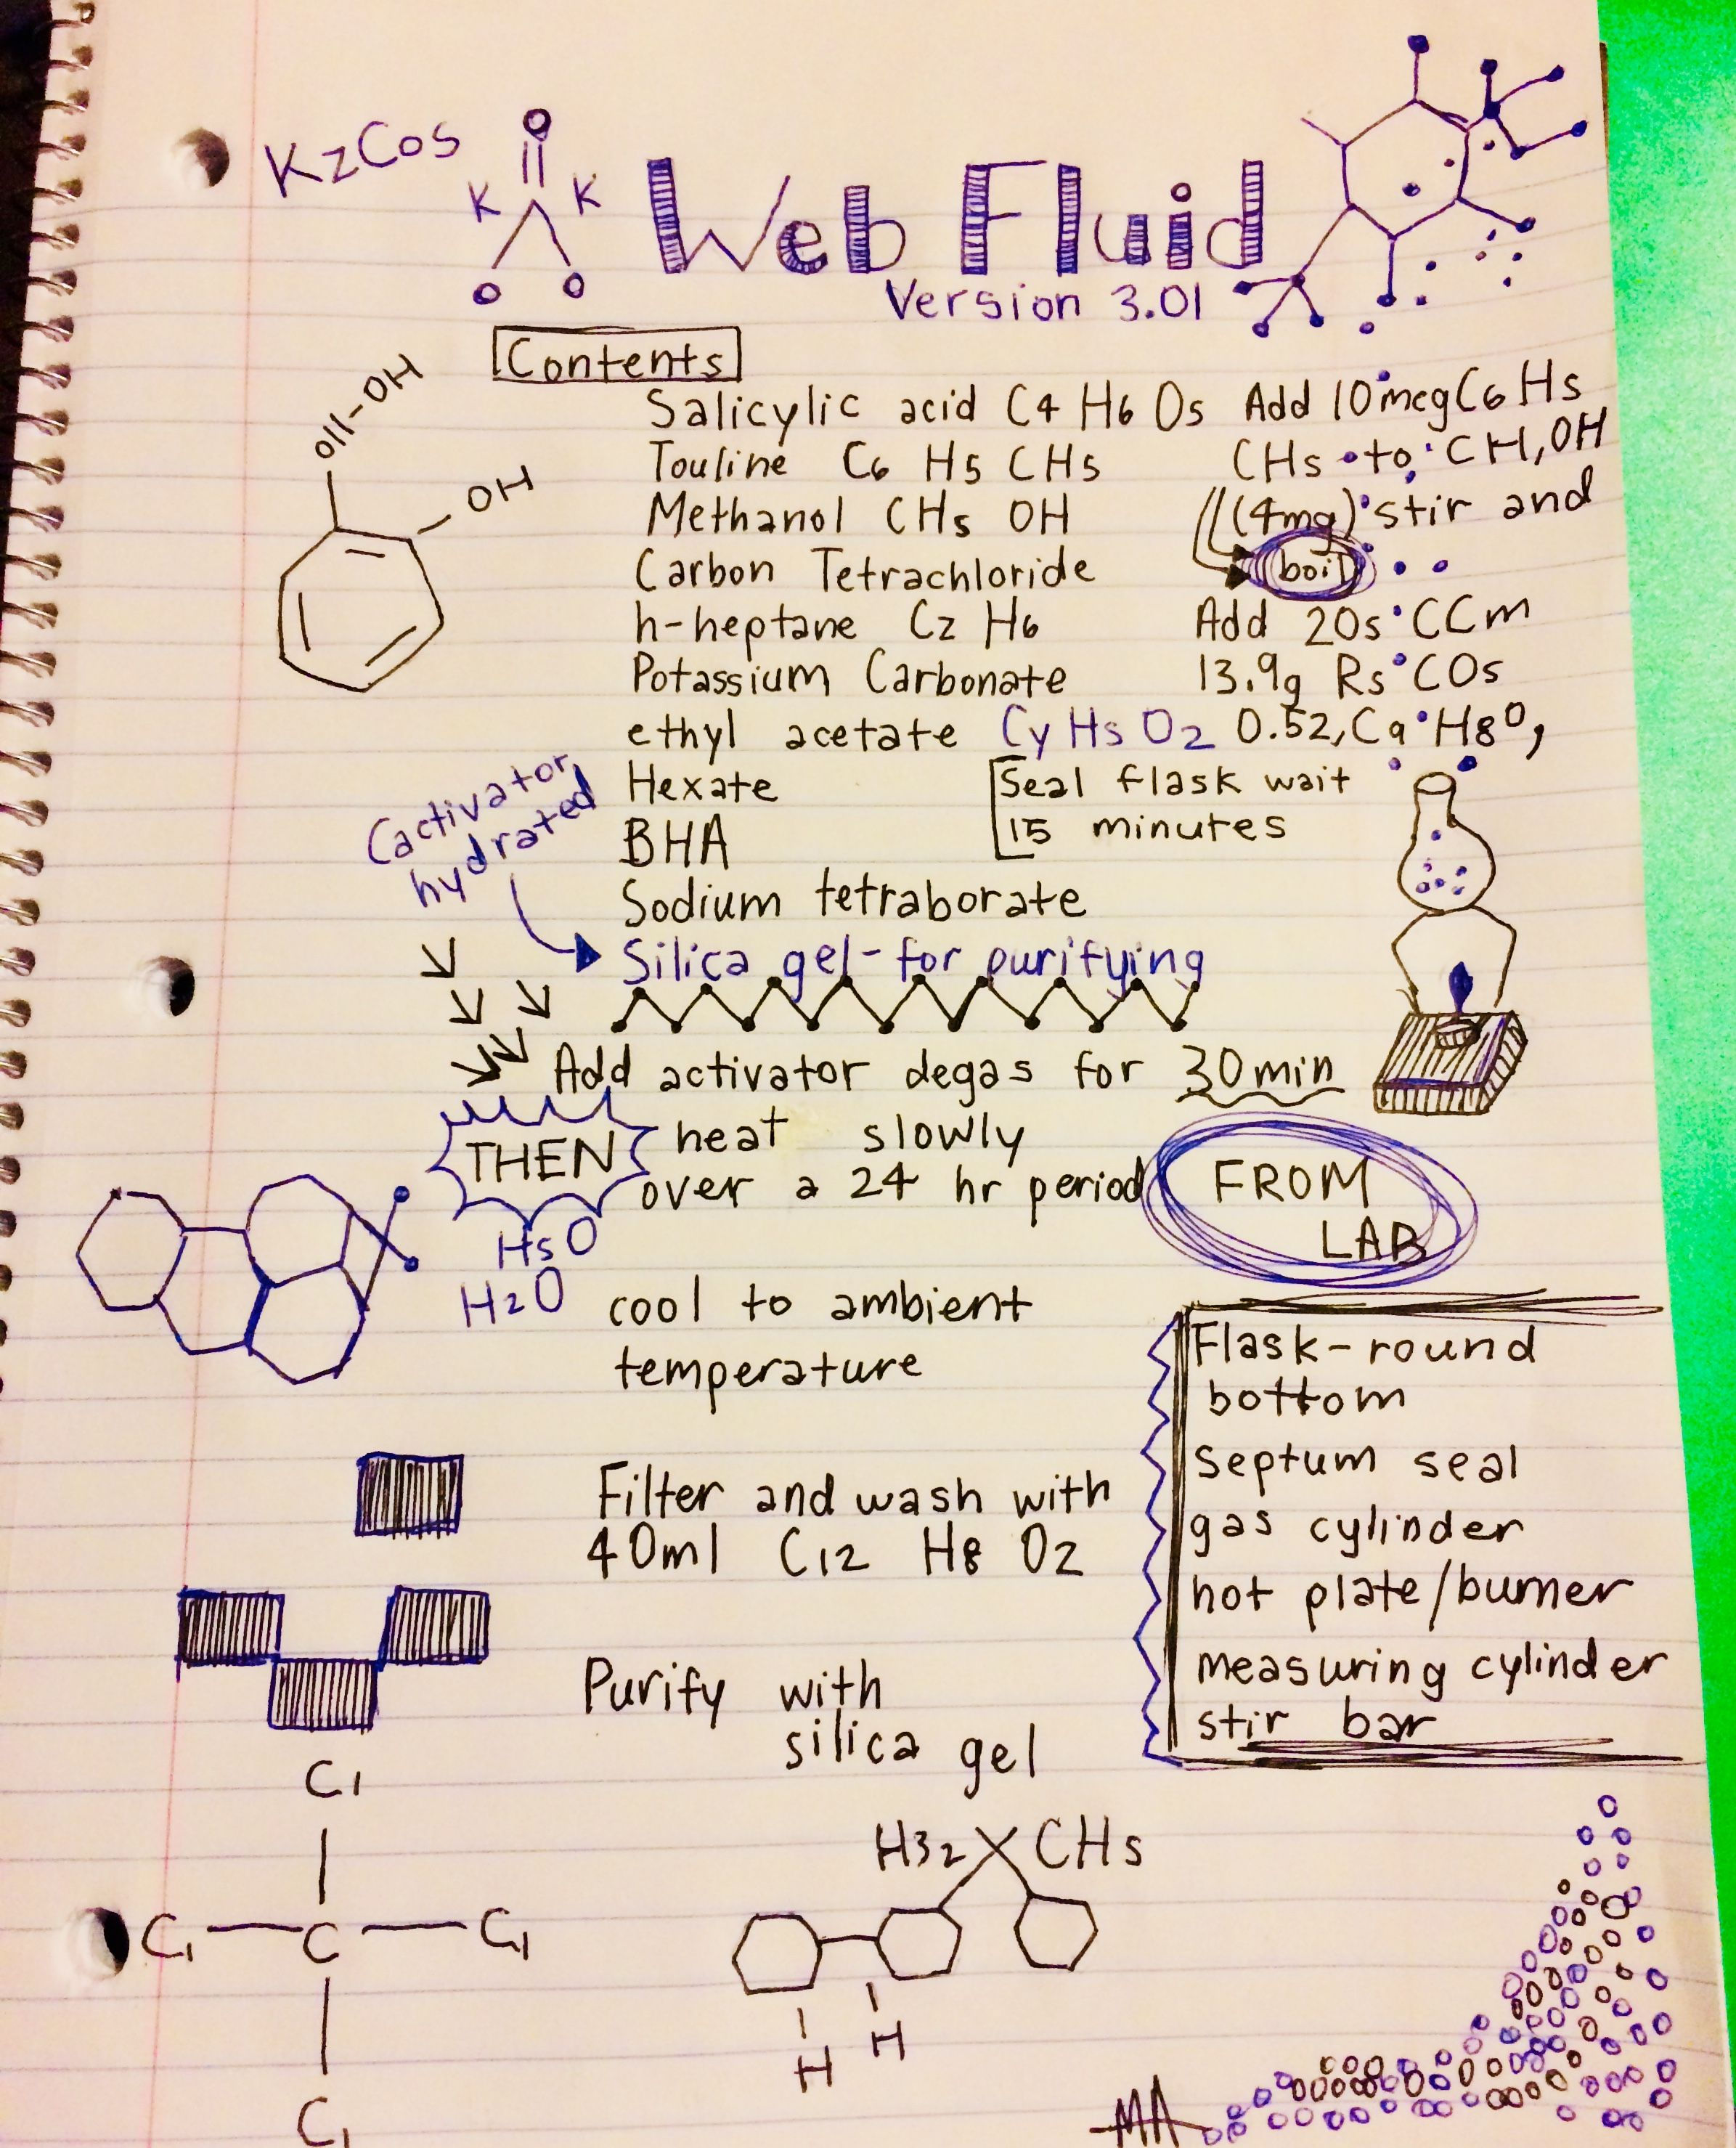 KzCos
O
K K
O O
Web Fluid
Version 3.01
Contents
Salicylic acid C4 H6 Os
Touline C6 H5 CH5
Methanol CHs OH
Carbon Tetrachloride
h-heptane Cz H6
Potassium Carbonate
ethyl acetate Cy Hs O2
Hexate
BHA
Sodium tetraborate
Silica gel-for purifying
Add 10mcg C6 Hs
CHs to CH,OH
(4mg) stir and
boil
Add 20s CCm
13.9g Rs COs
0.52, Ca H80,
Seal flask wait
15 minutes
oll-OH
OH
Cactivator
hydrated
Add activator degas for 30min
THEN heat slowly
over a 24 hr period
HsO
H2O
cool to ambient
temperature
Filter and wash with
40ml C12 H8 O2
Purify with
silica gel
FROM
LAB
Flask-round
bottom
septum seal
gas cylinder
hot plate/burner
measuring cylinder
stir bar
Cl
Cl C Cl
Cl
H32 CHs
H H
MA